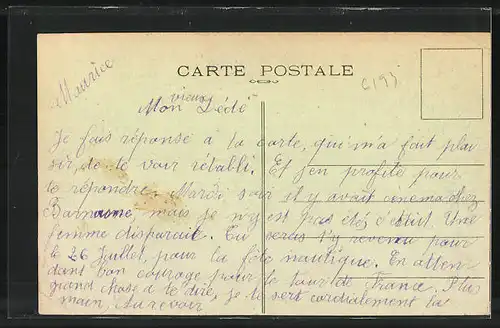 Maurice
CARTE POSTALE
C193
Mon vieux Dédé
Je fais réponse à ta carte, qui m'a fait plai
sir, de te voir rétabli. Et j'en profite pour
te répondre. Mardi soir il y avait cinema chez
mais je n'y est pas été, c'était. Une
femme disparait. Tu seras revenu pour
le 26 Juillet, pour la fête nautique. En atten
dant bon courage pour le tour de France. Plus
grand chose a te dire, je te sert cordialement la
main, Au revoir